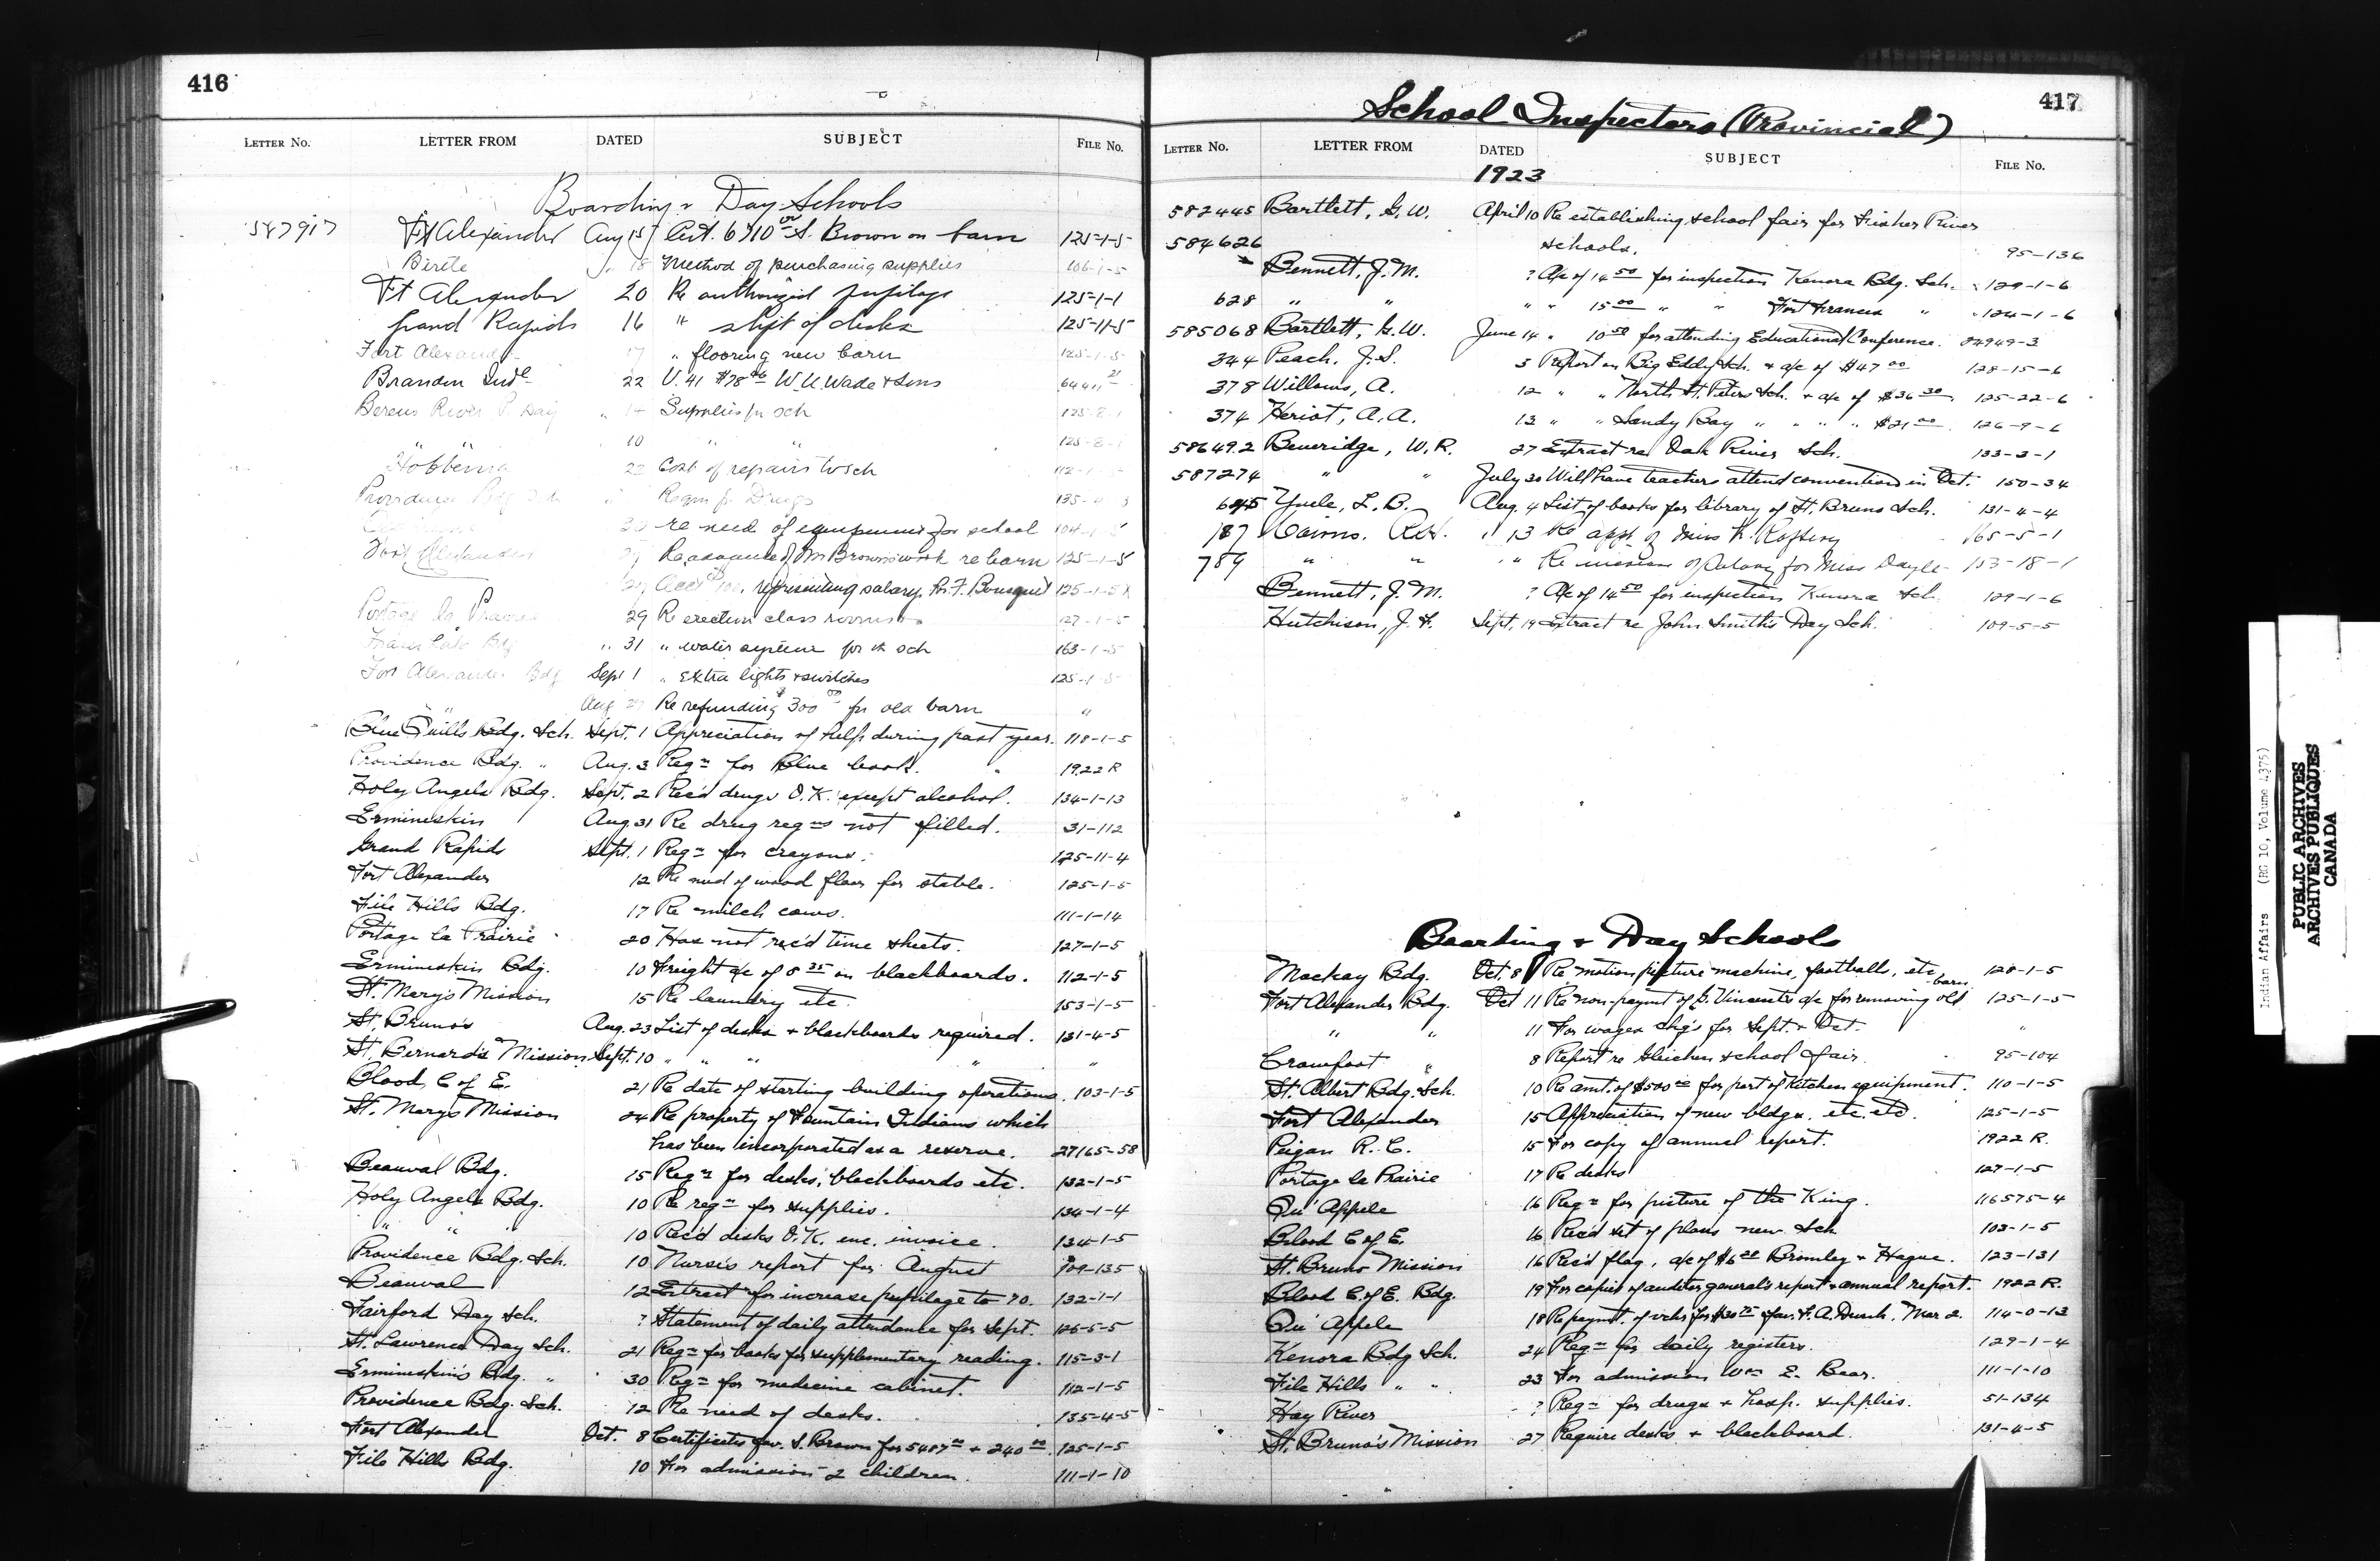 416
LETTER No. LETTER FROM DATED SUBJECT FILE No.
Boarding & Day Schools
547917 Ft Alexander Aug 15 Cert. 6710 00 S. Brown on barn 125-1-5
Birtle " 18 Method of purchasing supplies 106-1-5
Ft Alexander 20 Re authorized pupilage 125-1-1
Grand Rapids 16 " shipt of desks 125-11-5
Fort Alexander 17 " flooring new barn 125-1-5
Brandon Indl 22 V. 41 $78 W.U. Wade & Sons
Berens River Day " 14 Supplies for sch 125-8-1
10 " " 125-8-1
Hobbema 22 Cost of repairs to sch 112-1-5
Providence Bdg Sch Reqn for Drugs
re need of equipment for school 104-1-5
Fort Alexander 27 Re advance of Mr Brown's work re barn 125-1-5
representing salary, 125-1-5
Portage la Prairie 29 Re erection class rooms 127-1-5
" 31 " water system for sch 163-1-5
Fort Alexander Bdg Sept 1 " extra lights & switches 125-1-5
" " Aug 27 Re refunding $300 00 for old barn "
Blue Quills Bdg. Sch. Sept. 1 Appreciation of help during past year. 118-1-5
Providence Bdg. " Aug. 3 Reqn for Blue book. 1922 R
Holy Angels Bdg. Sept. 2 Rec'd drugs O.K. except alcohol. 134-1-13
Ermineskin Aug. 31 Re drug reqns not filled. 51-112
Grand Rapids Sept. 1 Reqn for crayons. 125-11-4
Fort Alexander 12 Re need of wood floor for stable. 125-1-5
File Hills Bdg. 17 Re milch cows. 111-1-14
Portage la Prairie 20 Has not rec'd time sheets. 127-1-5
Ermineskin Bdg. 10 Freight a/c of 5 35 on blackboards. 112-1-5
St. Mary's Mission 15 Re laundry etc. 153-1-5
St. Bruno's Aug. 23 List of desks & blackboards required. 131-4-5
St. Bernard's Mission Sept. 10 " " " " "
Blood C of E. 21 Re date of starting building operations. 103-1-5
St. Mary's Mission 24 Re property of Fountain Indians which
has been incorporated as a reserve. 27165-58
Beauval Bdg. 15 Reqn for desks, blackboards etc. 132-1-5
Holy Angels Bdg. 10 Re reqn for supplies. 134-1-4
" " " 10 Rec'd desks O.K. enc. invoice. 134-1-5
Providence Bdg. Sch. 10 Nurse's report for August 709-135
Beauval 12 Extract for increase pupilage to 70. 132-1-1
Fairford Day Sch. ? Statement of daily attendance for Sept. 125-5-5
St. Lawrence Day Sch. 21 Reqn for books for supplementary reading. 115-3-1
Ermineskin's Bdg. " 30 Reqn for medicine cabinet. 112-1-5
Providence Bdg. Sch. 12 Re need of desks. 135-4-5
Fort Alexander Oct. 8 Certificates fav. S. Brown for 5487 00 & 240 00. 125-1-5
File Hills Bdg. 10 For admission 2 children. 111-1-10
417
School Inspectors (Provincial)
LETTER No. LETTER FROM DATED SUBJECT FILE No.
1923
582445 Bartlett, G.W. April 10 Re establishing school fair for Fisher River
schools. 95-136
584626 Bennett, J.M. ? A/c of 14 50 for inspection Kenora Bdg. Sch. 129-1-6
628 " " " " 15 00 " " Fort Frances " 124-1-6
585068 Bartlett, G.W. June 14 " 10 50 for attending Educational Conference. 04949-3
344 Peach, J.S. 5 Report on Big Eddy Sch. & a/c of $47 00 128-15-6
378 Willows, A. 12 " " North St. Peters Sch. & a/c of $36 30 125-22-6
374 Heriot, A.A. 13 " " Sandy Bay " " " " $21 00 126-9-6
586492 Beveridge, W.R. 27 Extract re Oak River Sch. 133-3-1
587274 " " July 30 Will have teachers attend convention in Oct. 150-34
645 Yuile, L.B. Aug. 4 List of books for library of St. Bruno Sch. 131-4-4
187 Cairns, " 13 Re appt. of Miss K. Raftery 165-5-1
789 " " " " Re increase of salary for Miss Doyle 153-18-1
Bennett, J.M. ? A/c of 14 50 for inspection Kenora Sch. 129-1-6
Hutchison, J.F. Sept. 19 Extract re John Smith's Day Sch. 109-5-5
Boarding & Day Schools
Mackay Bdg. Oct. 8 Re motion picture machine, footballs, etc 128-1-5
Fort Alexander Bdg. Oct 11 Re non-paymt of G. Vincent's a/c for removing old barn. 125-1-5
" " 11 For wages chq's for Sept. & Oct. "
Crowfoot " 8 Report re Gleichen school fair. 95-104
St. Albert Bdg. Sch. 10 Re amt. of $500 00 for part of kitchen equipment. 110-1-5
Fort Alexander 15 Appreciation of new bldgs. etc. etc. 125-1-5
Peigan R.C. 15 For copy of annual report. 1922 R.
Portage la Prairie 17 Re desks 127-1-5
Qu'Appele 16 Reqn for picture of the King. 116575-4
Blood C of E. 16 Rec'd set of plans new Sch 103-1-5
St. Bruno Mission 16 Rec'd flag, a/c of $6 20 Bromley & Hague. 123-131
Blood C of E. Bdg. 19 For copies of auditor general's report & annual report. 1922 R.
Qu'Appele 18 Re paymt. of vchs for $30 75 fav. F.A. Dunk, Mar 2. 114-0-13
Kenora Bdg Sch. 24 Reqn for daily registers. 129-1-4
File Hills " " 23 For admission Wm E. Bear. 111-1-10
Hay River ? Reqn for drugs & hosp. supplies. 51-134
St. Bruno's Mission 27 Require desks & blackboard. 131-4-5
Indian Affairs (RG 10, Volume 4375)
PUBLIC ARCHIVES
ARCHIVES PUBLIQUES
CANADA